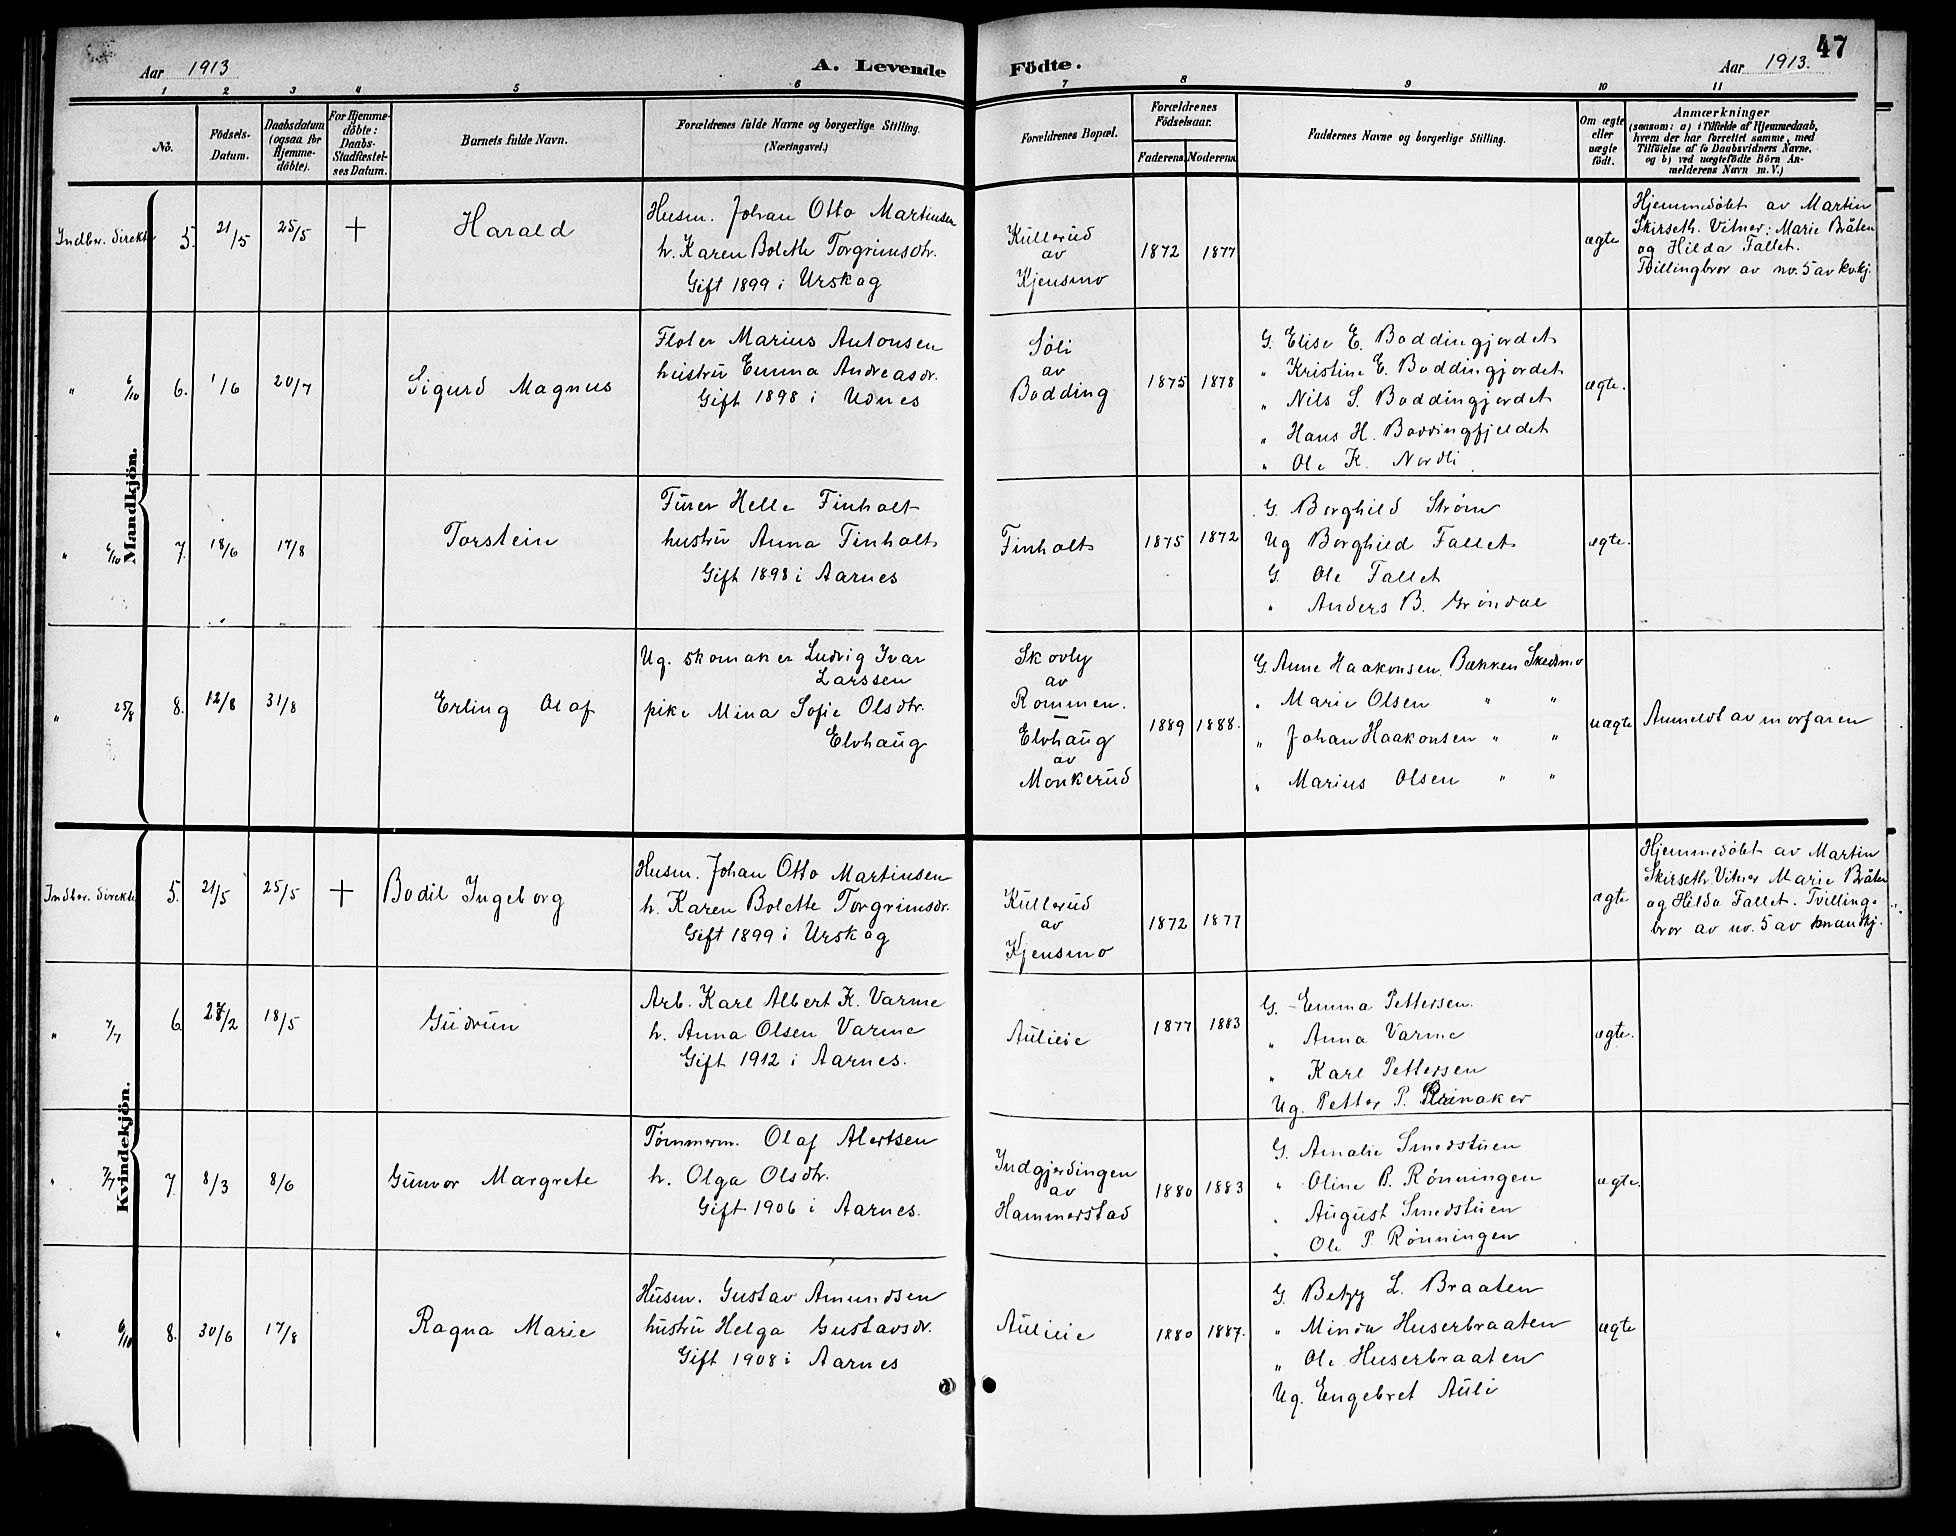 47
Aar 1913
A. Levende Födte.
Aar 1913.
1 2 3 4 5 6 7 8 9 10 11
No.
Födsels-
Datum.
Daabsdatum
(ogsaa for
Hjemme-
döbte).
For Hjemme-
döbte:
Daabs-
Stadfæstel-
ses Datum.
Barnets fulde Navn.
Forældrenes fulde Navne og borgerlige Stilling.
(Næringsvei.)
Forældrenes Bopæl.
Forældrenes
Födselsaar.
Faderens. Moderens.
Faddernes Navne og borgerlige Stilling.
Om ægte
eller
uægte
födt.
Anmærkninger
(saasom: a) i Tilfælde af Hjemmedaab,
hvem der har forrettet samme, med
Tilföielse af to Daabsvidners Navne,
og b) ved uægtefödte Börn An-
melderens Navn m. V.)
Mandkjön.
Indber. direkte 5. 21/5 25/5 + Harald
Husm. Johan Otto Martinsen
h. Karen Bolette Torgrimsdtr.
Gift 1899 i Urskog
Kullerud
av
Kjensmo
1872 1877
ægte
Hjemmedøbt av Martin
Skirseth. Vitner: Marie Bråten
og Hilda Fallet.
Tvillingbror av no. 5 av kvkj.
" 6/10 6. 1/6 20/7 Sigurd Magnus
Fløter Marius Antonsen
hustru Emma Andreasdr.
Gift 1898 i Udnes
Søli
av
Bodding
1875 1878
G. Elise E. Boddingjordet
" Kristine E. Boddingjordet
" Nils S. Boddingjordet
" Hans H. Boddingfjeldet
" Ole K. Nordli
ægte.
" 6/10 7. 18/6 17/8 Torstein
Furer Helle Finholt
hustru Anna Finholt
Gift 1898 i Aarnes
Finholt
1875 1872
G. Borghild Strøm
Ug Borghild Fallet
G. Ole Fallet
" Anders B. Grøndal
ægte.
" 25/8 8. 12/8 31/8 Erling Olaf
Ug. skomaker Ludvig Ivar
Larssen
pike Mina Sofie Olsdtr.
Elvhaug
Skovly
av
Rommen.
Elvhaug
av
Monkerud
1889 1888.
G. Anne Haakonsen Bækken Skedsmo
" Marie Olsen " "
" Johan Haakonsen " "
" Marius Olsen " "
uægte
Anmeldt av morfaren
Kvindekjön.
Indber. direkte 5. 21/5 25/5 + Bodil Ingeborg
Husm. Johan Otto Martinsen
h. Karen Bolette Torgrimsdr.
Gift 1899 i Urskog
Kullerud
av
Kjensmo
1872 1877
ægte
Hjemmedøbt av Martin
Skirseth. Vitner Marie Bråten
og Hilda Fallet. Tvilling-
bror av no. 5 av mandkj.
" 7/7 6 /2 18/5 Gudrun
Arb. Karl Albert K. Varme
h. Anna Olsen Varme
Gift 1912 i Aarnes.
Aulieie
1877 1883
G. Emma Pettersen.
" Anna Varme
" Karl Pettersen
Ug. Petter P.
ægte.
" 7/7 7. 8/3 8/6 Gunvor Margrete
Tømmerm. Olaf Alertsen
h. Olga Olsdtr.
Gift 1906 i Aarnes.
Indgjerdingen
av
Hammerstad
1880 1883
G. Amalie Smedstuen
" Oline B. Rønningen
" August Smedstuen
" Ole P. Rønningen
ægte.
" 6/10 8. 30/6 17/8 Ragna Marie
Husm. Gustav Amundsen
hustru Helga Gustavsdr.
Gift 1908 i Aarnes
Aulieie
1880 1887.
G. Betzy L. Braaten
" Minda Huserbraaten
" Ole Huserbraaten
Ug. Engebret Auli
ægte